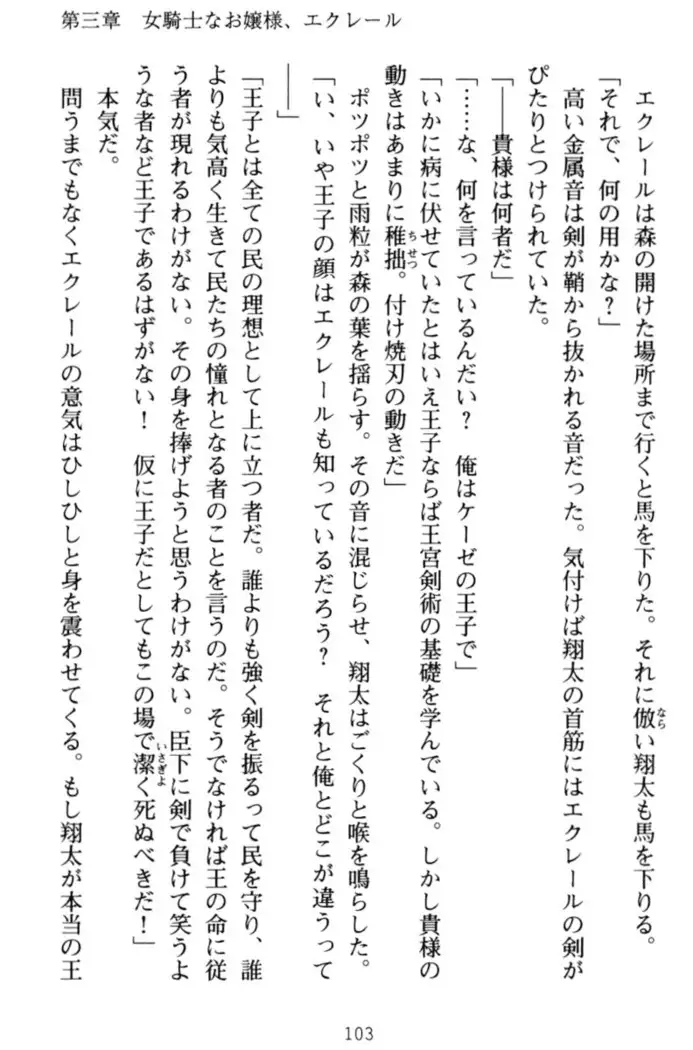 第三章　女騎士なお嬢様、エクレール
　エクレールは森の開けた場所まで行くと馬を下りた。それに倣い翔太も馬を下りる。
「それで、何の用かな？」
　高い金属音は剣が鞘から抜かれる音だった。気付けば翔太の首筋にはエクレールの剣が
ぴたりとつけられていた。
「――貴様は何者だ」
「……な、何を言っているんだい？　俺はケーゼの王子で」
「いかに病に伏せていたとはいえ王子ならば王宮剣術の基礎を学んでいる。しかし貴様の
動きはあまりに稚拙。付け焼刃の動きだ」
　ポツポツと雨粒が森の葉を揺らす。その音に混じらせ、翔太はごくりと喉を鳴らした。
「い、いや王子の顔はエクレールも知っているだろう？　それと俺とどこが違うって
――」
「王子とは全ての民の理想として上に立つ者だ。誰よりも強く剣を振るって民を守り、誰
よりも気高く生きて民たちの憧れとなる者のことを言うのだ。そうでなければ王の命に従
う者が現れるわけがない。その身を捧げようと思うわけがない。臣下に剣で負けて笑うよ
うな者など王子であるはずがない！　仮に王子だとしてもこの場で潔く死ぬべきだ！」
　本気だ。
　問うまでもなくエクレールの意気はひしひしと身を震わせてくる。もし翔太が本当の王
103
なら
ちせつ
いさぎよ